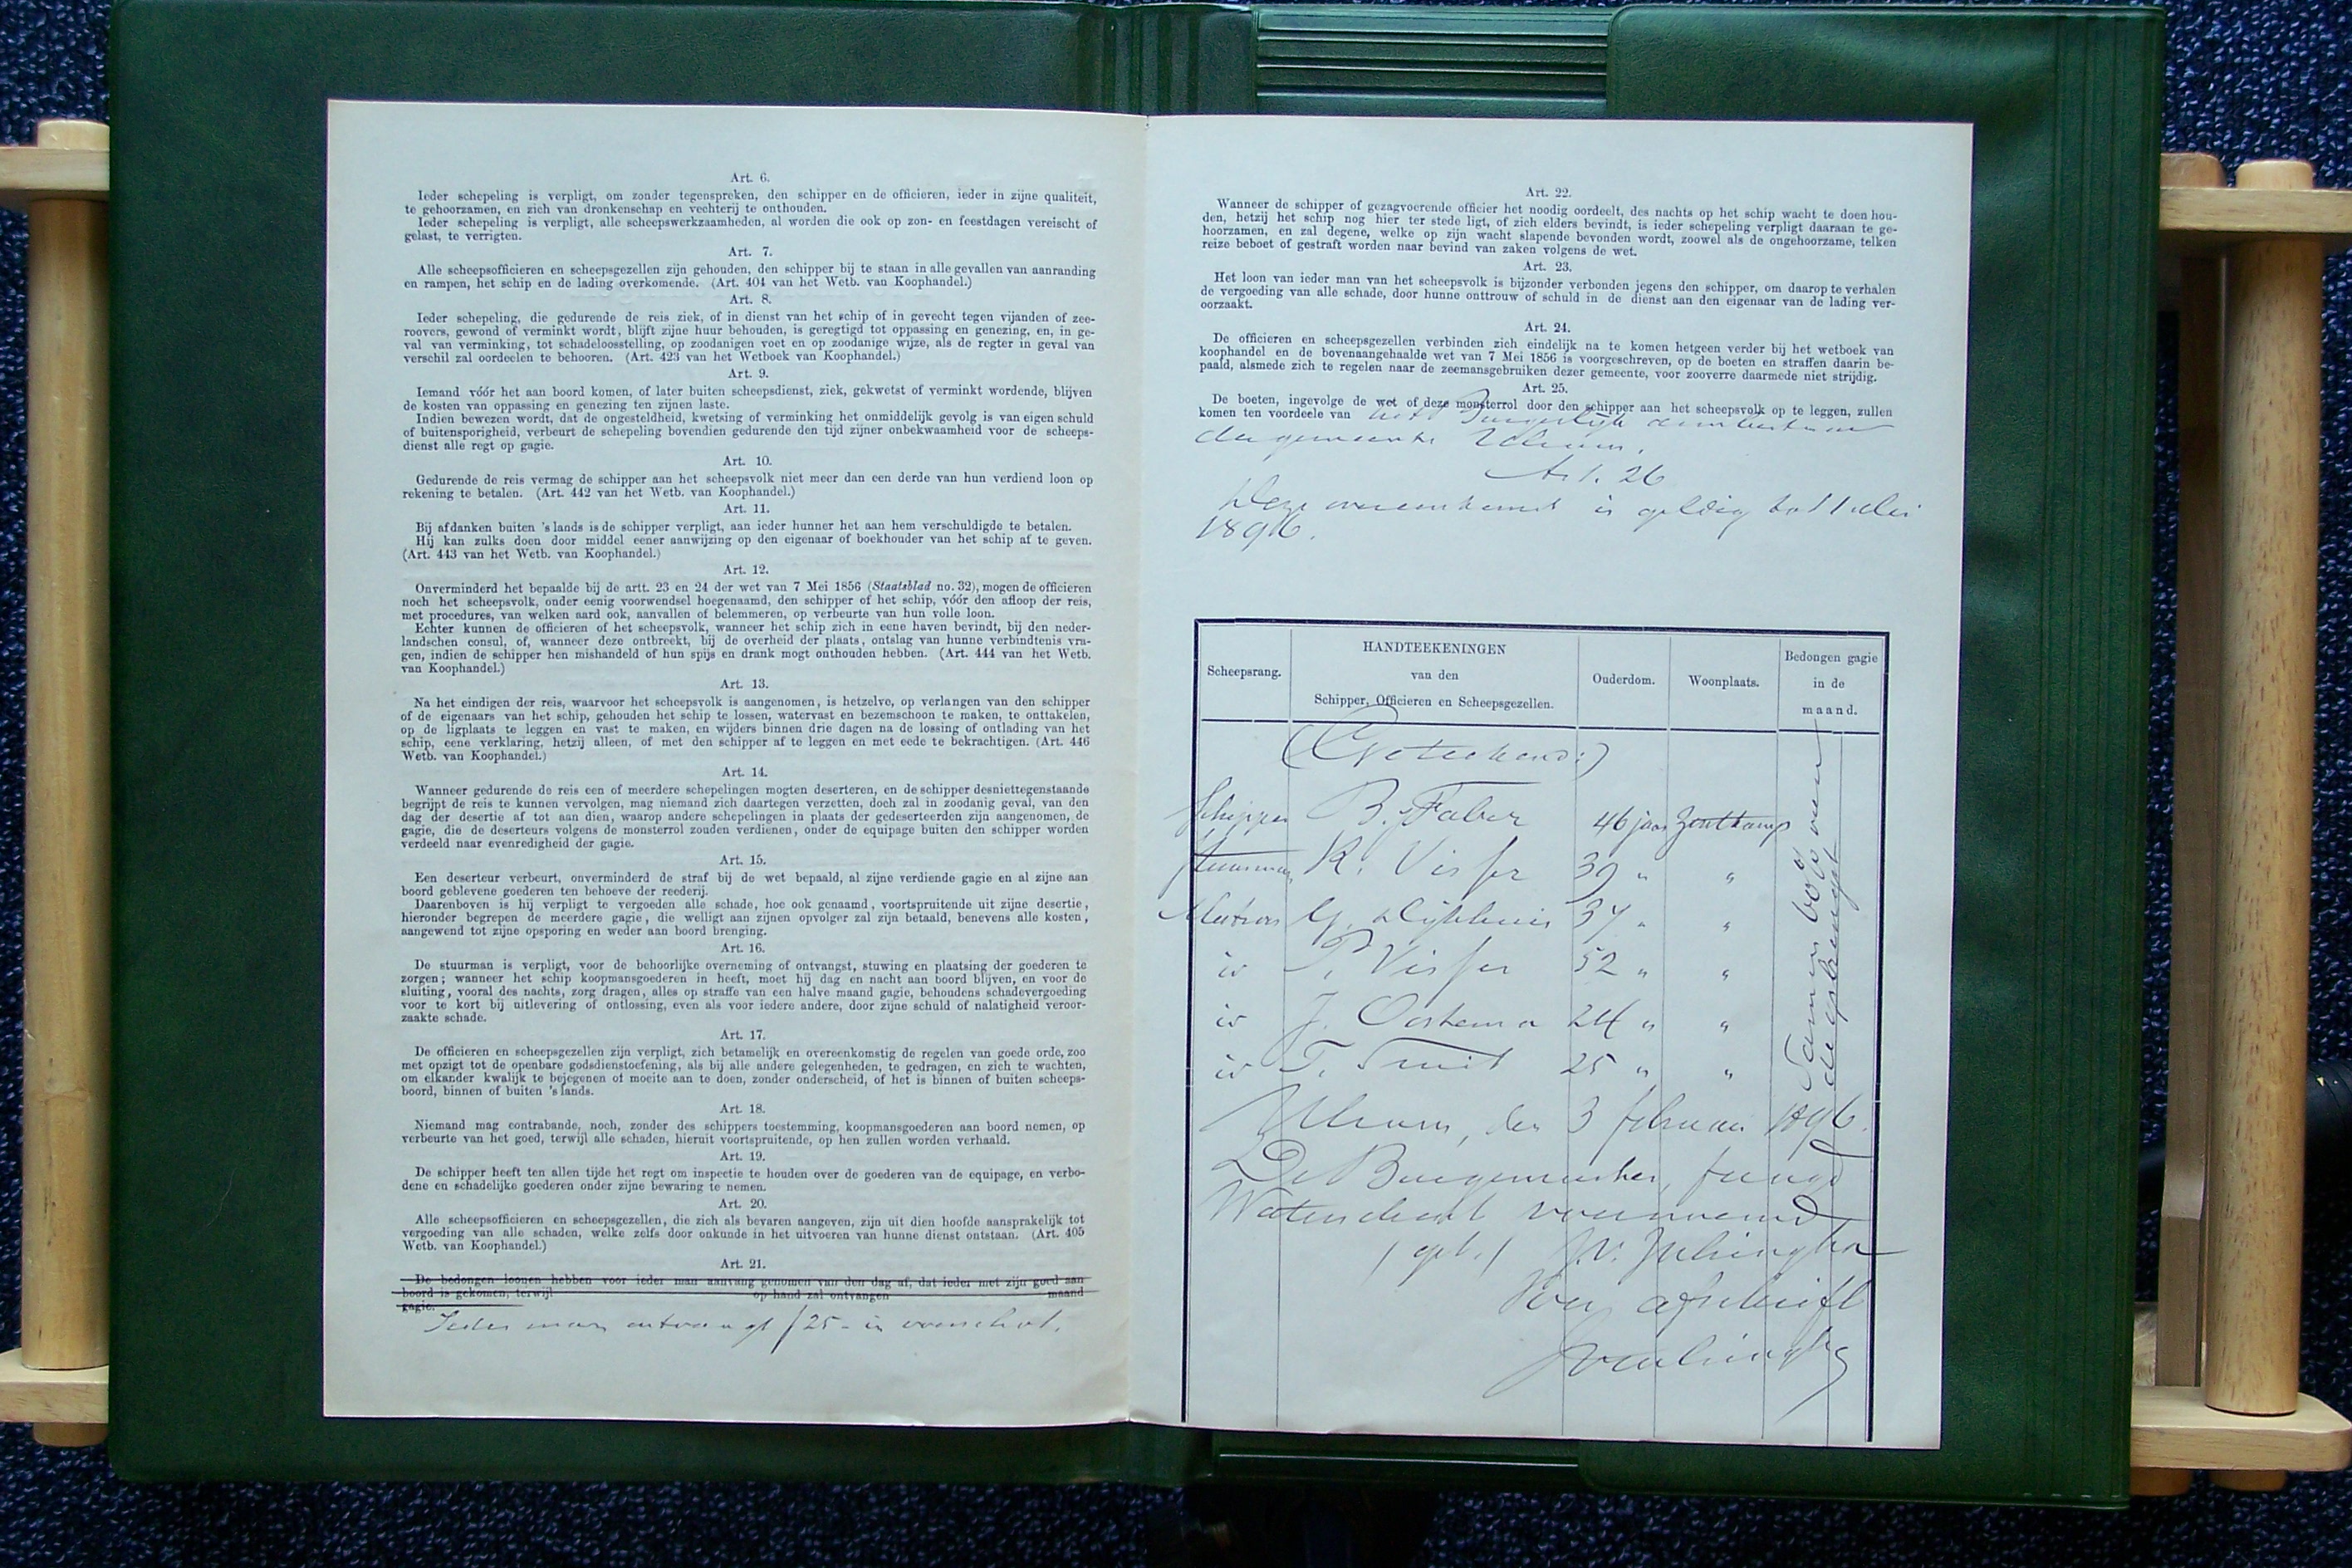 Art. 6.
Ieder schepeling is verpligt, om zonder tegenspreken, den schipper en de officieren, ieder in zijne qualiteit,
te gehoorzamen, en zich van dronkenschap en vechterij te onthouden.
Ieder schepeling is verpligt, alle scheepswerkzaamheden, al worden die ook op zon- en feestdagen vereischt of
gelast, te verrigten.
Art. 7.
Alle scheepsofficieren en scheepsgezellen zijn gehouden, den schipper bij te staan in alle gevallen van aanranding
en rampen, het schip en de lading overkomende. (Art. 404 van het Wetb. van Koophandel.)
Art. 8.
Ieder schepeling, die gedurende de reis ziek, of in dienst van het schip of in gevecht tegen vijanden of zee-
roovers, gewond of verminkt wordt, blijft zijne huur behouden, is geregtigd tot oppassing en genezing, en, in ge-
val van verminking, tot schadeloosstelling, op zoodanigen voet en op zoodanige wijze, als de regter in geval van
verschil zal oordeelen te behooren. (Art. 423 van het Wetboek van Koophandel.)
Art. 9.
Iemand vóór het aan boord komen, of later buiten scheepsdienst, ziek, gekwetst of verminkt wordende, blijven
de kosten van oppassing en genezing ten zijnen laste.
Indien bewezen wordt, dat de ongesteldheid, kwetsing of verminking het onmiddelijk gevolg is van eigen schuld
of buitensporigheid, verbeurt de schepeling bovendien gedurende den tijd zijner onbekwaamheid voor de scheeps-
dienst alle regt op gagie.
Art. 10.
Gedurende de reis vermag de schipper aan het scheepsvolk niet meer dan een derde van hun verdiend loon op
rekening te betalen. (Art. 442 van het Wetb. van Koophandel.)
Art. 11.
Bij afdanken buiten 's lands is de schipper verpligt, aan ieder hunner het aan hem verschuldigde te betalen.
Hij kan zulks doen door middel eener aanwijzing op den eigenaar of boekhouder van het schip af te geven.
(Art. 443 van het Wetb. van Koophandel.)
Art. 12.
Onverminderd het bepaalde bij de artt. 23 en 24 der wet van 7 Mei 1856 (Staatsblad no. 32), mogen de officieren
noch het scheepsvolk, onder eenig voorwendsel hoegenaamd, den schipper of het schip, vóór den afloop der reis,
met procedures, van welken aard ook, aanvallen of belemmeren, op verbeurte van hun volle loon.
Echter kunnen de officieren of het scheepsvolk, wanneer het schip zich in eene haven bevindt, bij den neder-
landschen consul, of, wanneer deze ontbreekt, bij de overheid der plaats, ontslag van hunne verbindtenis vra-
gen, indien de schipper hen mishandeld of hun spijs en drank mogt onthouden hebben. (Art. 444 van het Wetb.
van Koophandel.)
Art. 13.
Na het eindigen der reis, waarvoor het scheepsvolk is aangenomen, is hetzelve, op verlangen van den schipper
of de eigenaars van het schip, gehouden het schip te lossen, watervast en bezemschoon te maken, te onttakelen,
op de ligplaats te leggen en vast te maken, en wijders binnen drie dagen na de lossing of ontlading van het
schip, eene verklaring, hetzij alleen, of met den schipper af te leggen en met eede te bekrachtigen. (Art. 446
Wetb. van Koophandel.)
Art. 14.
Wanneer gedurende de reis een of meerdere schepelingen mogten deserteren, en de schipper desniettegenstaande
begrijpt de reis te kunnen vervolgen, mag niemand zich daartegen verzetten, doch zal in zoodanig geval, van den
dag der desertie af tot aan dien, waarop andere schepelingen in plaats der gedeserteerden zijn aangenomen, de
gagie, die de deserteurs volgens de monsterrol zouden verdienen, onder de equipage buiten den schipper worden
verdeeld naar evenredigheid der gagie.
Art. 15.
Een deserteur verbeurt, onverminderd de straf bij de wet bepaald, al zijne verdiende gagie en al zijne aan
boord geblevene goederen ten behoeve der reederij.
Daarenboven is hij verpligt te vergoeden alle schade, hoe ook genaamd, voortspruitende uit zijne desertie,
hieronder begrepen de meerdere gagie, die welligt aan zijnen opvolger zal zijn betaald, benevens alle kosten,
aangewend tot zijne opsporing en weder aan boord brenging.
Art. 16.
De stuurman is verpligt, voor de behoorlijke overneming of ontvangst, stuwing en plaatsing der goederen te
zorgen; wanneer het schip koopmansgoederen in heeft, moet hij dag en nacht aan boord blijven, en voor de
sluiting, vooral des nachts, zorg dragen, alles op straffe van een halve maand gagie, behoudens schadevergoeding
voor te kort bij uitlevering of ontlossing, even als voor iedere andere, door zijne schuld of nalatigheid veroor-
zaakte schade.
Art. 17.
De officieren en scheepsgezellen zijn verpligt, zich betamelijk en overeenkomstig de regelen van goede orde, zoo
met opzigt tot de openbare godsdienstoefening, als bij alle andere gelegenheden, te gedragen, en zich te wachten,
om elkander kwalijk te bejegenen of moeite aan te doen, zonder onderscheid, of het is binnen of buiten scheeps-
boord, binnen of buiten 's lands.
Art. 18.
Niemand mag contrabande, noch, zonder des schippers toestemming, koopmansgoederen aan boord nemen, op
verbeurte van het goed, terwijl alle schaden, hieruit voortspruitende, op hen zullen worden verhaald.
Art. 19.
De schipper heeft ten allen tijde het regt om inspectie te houden over de goederen van de equipage, en verbo-
dene en schadelijke goederen onder zijne bewaring te nemen.
Art. 20.
Alle scheepsofficieren en scheepsgezellen, die zich als bevaren aangeven, zijn uit dien hoofde aansprakelijk tot
vergoeding van alle schaden, welke zelfs door onkunde in het uitvoeren van hunne dienst ontstaan. (Art. 405
Wetb. van Koophandel.)
Art. 21.
De bedongen loonen hebben voor ieder man aanvang genomen van den dag af, dat ieder met zijn goed aan
boord is gekomen, terwijl op hand zal ontvangen maand
gagie.
Ieder man ontvangt f 25 - in voorschot.
Art. 22.
Wanneer de schipper of gezagvoerende officier het noodig oordeelt, des nachts op het schip wacht te doen hou-
den, hetzij het schip nog hier ter stede ligt, of zich elders bevindt, is ieder schepeling verpligt daaraan te ge-
hoorzamen, en zal degene, welke op zijn wacht slapende bevonden wordt, zoowel als de ongehoorzame, telken
reize beboet of gestraft worden naar bevind van zaken volgens de wet.
Art. 23.
Het loon van ieder man van het scheepsvolk is bijzonder verbonden jegens den schipper, om daarop te verhalen
de vergoeding van alle schade, door hunne onttrouw of schuld in de dienst aan den eigenaar van de lading ver-
oorzaakt.
Art. 24.
De officieren en scheepsgezellen verbinden zich eindelijk na te komen hetgeen verder bij het wetboek van
koophandel en de bovenaangehaalde wet van 7 Mei 1856 is voorgeschreven, op de boeten en straffen daarin be-
paald, alsmede zich te regelen naar de zeemansgebruiken dezer gemeente, voor zooverre daarmede niet strijdig.
Art. 25.
De boeten, ingevolge de wet of deze monsterrol door den schipper aan het scheepsvolk op te leggen, zullen
komen ten voordeele van het Burgerlijk armbestuur
der gemeente Ulrum.
Art. 26
Deze overeenkomst is geldig tot 1 Mei
1896.
Scheepsrang. HANDTEEKENINGEN van den Schipper, Officieren en Scheepsgezellen. Ouderdom. Woonplaats. Bedongen gagie in de maand.
(Geteekend:)
Schipper B. Faber 46 jaar Zoutkamp
Stuurman K. Visser 39 " "
Matroos G. Dijkhuis 37 " "
id P. Visser 52 " "
id J. Oostema 24 " "
id T. Smit 25 " "
Samen 60% van
de opbrengst
Ulrum, den 3 februari 1896.
De Burgemeester, fungd
Waterschout voornoemd
(get.)
Voor afschrift